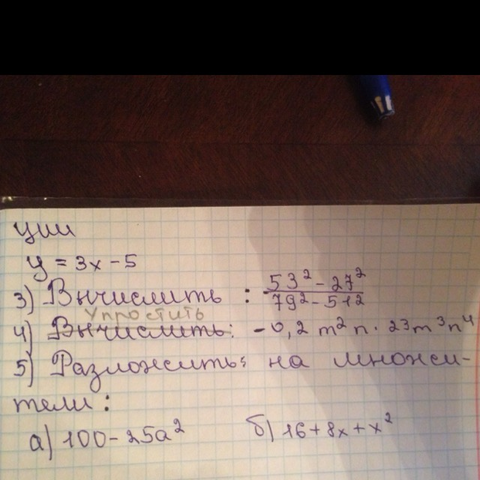 ции
y = 3x - 5
3) Вычислить : 53² - 27² / 79² - 51²
Упростить
4) Вычислить: - 0,2 m² n · 23m³n⁴
5) Разложить: на множи-
тели:
а) 100 - 25a² б) 16 + 8x + x²